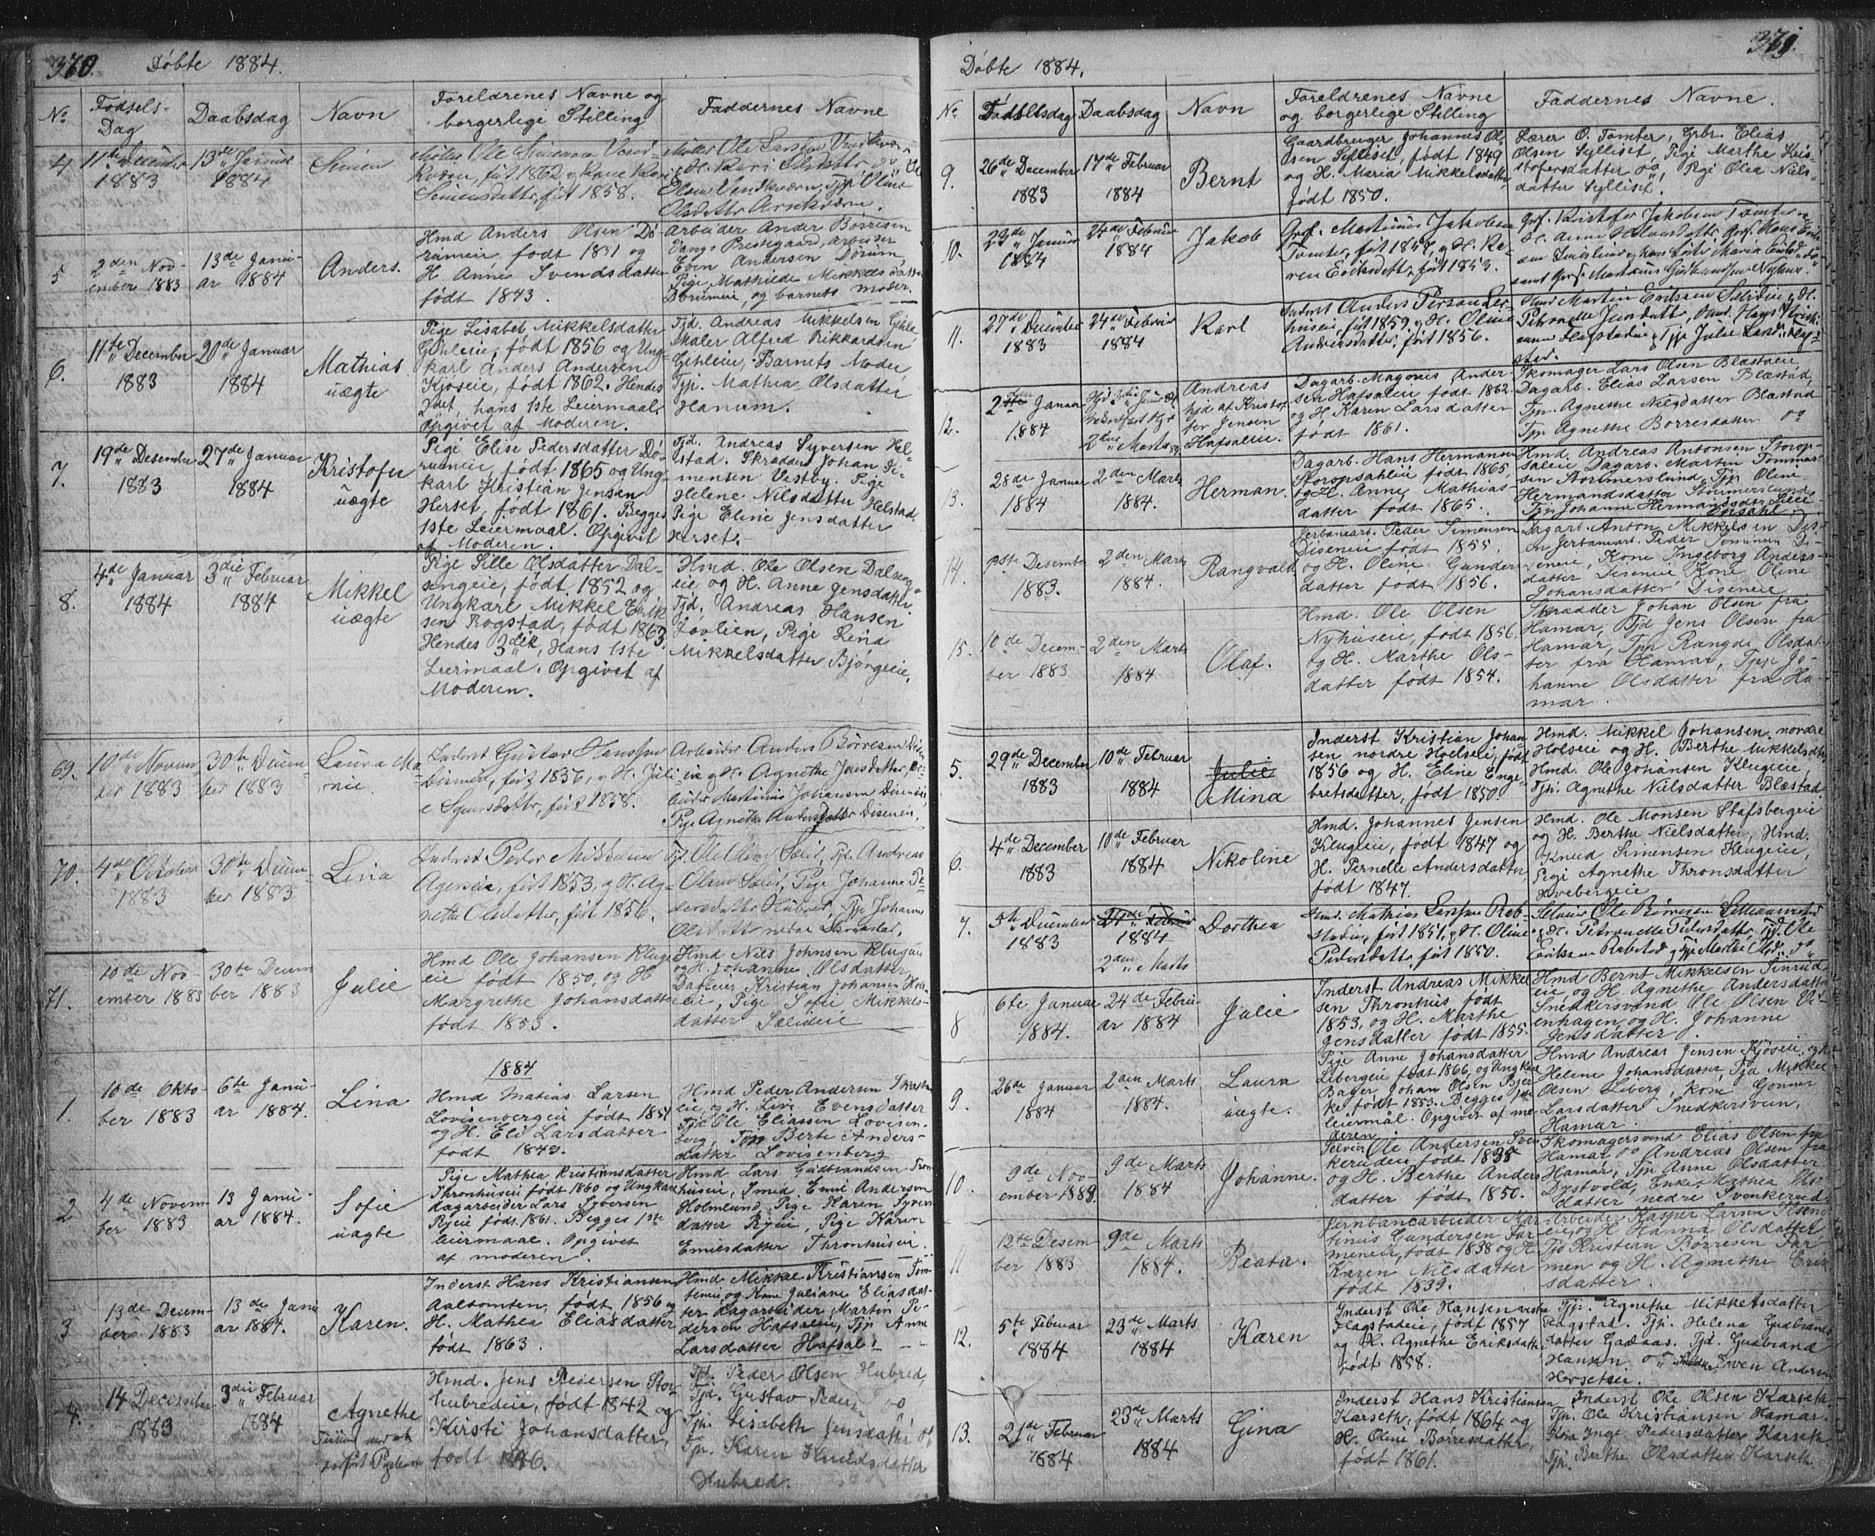 370.
Döbte 1884.
No
Fødsels-
Dag
Daabsdag
Navn
Foreldrenes Navne og
borgerlige Stilling
Faddernes Navne
4
11te December
1883
13de Januar
1884
Simen
Møller Ole Simensen
født 1862 og Kone Kari
Simensdatter, født 1858.
Møller Ole Larsen
5
2den Nov-
ember 1883
13de Janu-
ar 1884
Anders.
Hmd Anders Olsen Dö-
rumeie, født 1831 og
H. Anne Svendsdatter
født 1843.
Arbeider Andr Börresen
Vangs Prestgaar, arbeider
Even Andersen Dörum,
Pige Mathilde Mikkelsdatter
Dörumeie, og barnets moder.
6.
11te December
1883
20de Januar
1884
Mathias
uægte
Pige Lisabet Mikkelsdatter
Gehleie, født 1856 og Ung-
karl Anders Andersen
Kjoseie, født 1862. Hendes
2det, hans 1ste Leiermaal
Opgivet af Moderen.
Tjd. Andreas Mikkelsen Gehle
Maler Alfred Rikkardsen
Gehleie, Barnets Moder
Tjp. Mathea Olsdatter
Hanum.
7.
19de Desember
1883
27de Januar
1884
Kristofer
uægte
Pige Elise Pedersdatter Dö-
rumeie, født 1865 og Ung-
karl Kristian Jensen
Herset, født 1861. Begges
1ste Leiermaal. Opgivet
af Moderen.
Tjd. Andreas Syversen Hel-
stad. Skrædder Johan Si-
mensen Vestby. Pige
Helene Nilsdatter Helstad.
Pige Eline Jensdatter
Herset.
8.
4de Januar
1884
3die Februar
1884
Mikkel
uægte
Pige Sille Olsdatter Dal-
sengeie, født 1852 og
Ungkarl Mikkel Erik-
sen Rogstad, født 1863.
Hendes 3die, Hans 1ste
Leiermaal. Opgivet af
Moderen.
Hmd. Ole Olsen Dalseng-
eie og H. Anne Jensdatter.
Tjd. Andreas Hansen
Løvlien, Pige Lena
Mikkelsdatter Bjørgeie.
69.
10de Novem-
ber 1883
30te Decem-
ber 1883
Laura Ma-
rie
Inderst Gustav Hanssen
født 1856, og H. Juli
e Syversdatter, født 1858.
Arbeider Anders Börresen Dise-
eie og H. Agnethe Jensdatter,
Martinius Johansen Diseneie
Pige Agnethe Andersdatter Diseneie.
70.
4de October
1883
30te Decem-
ber 1883
Lina
Inderst Peder Mikkelsen
Ageseie, født 1853, og H. Ag-
nethe Olsdatter, født 1856.
Tjd. Ole Olsen Sælid, Tjd. Andreas
Olsen Sælid, Pige Johanne Pe-
dersdatter Hubred, Tjp Johanne
Olsdatter nedre
71.
10de Nov-
ember 1883
30te Decem
ber 1883
Julie
Hmd Ole Johansen Kluge
eie født 1850, og H
Margrethe Johansdatter
født 1853.
Hmd Nils Johnsen Klugeie
og H. Johanne Olsdatter,
Kristian Johansen
eie, Pige Sofie Mikkels-
datter Sælideie
1884
1.
10de Okto-
ber 1883
6te Janu-
ar 1884.
Lina
Hmd Matias Larsen
Lovisenbergeie født 1851
og H. Eli Larsdatter
født 1849.
Hmd Peder Andersen
eie og H. Live Evensdatter
Tjd Ole Eliassen Lovisen-
berg, Tjp Berte Anders-
datter Lovisenberg
2
4de Novem-
ber 1883
13 Janu-
ar 1884.
Sofie
uægte
Pige Mathea Kristiansdatter
Thronhuseie født 1860 og Ungkarl
dagarbeider Lars Syversen
Ryeie født 1861. Begges 1ste
leiermaal. Opgivet
af moderen.
Hmd Lars Gudbrandsen Tron-
huseie, Smed Emil Andersen
Holmlund, Pige Karen Syvers
datter Ryeie, Pige Karen
Emilsdatter Thronhuseie.
3
13de Decem-
ber 1883
13de Janu
ar 1884.
Karen.
Inderst Hans Kristiansen
Aalsomten, født 1856 og
H. Mathea Eliasdatter
født 1863
Hmd Mikkel Kristiansen Tom-
tereie og Kone Juliane Eliasdat-
ter Dagarbeider Martin Pe-
dersen Hafsaleie, Tjp Anne
Larsdatter Hafsal
4.
14 December
1883
3die Februar
1884
Agnethe
Hmd. Jens Pedersen Stor-
hubredeie, født 1842 og
Kirsti Johansdatter,
født 1846.
Tjd. Peder Olsen Hubred
Tjd. Gustav Peder
Tjp. Lisabeth Jensdatter
Tjp. Karen Knudsdatter
Hubred.
371.
Döbte 1884.
No
Födselsdag
Daabsdag
Navn
Foreldrenes Navne
og borgerlige Stilling
Faddernes Navne.
9.
26de December
1883
17de Februar
1884
Bernt
Gaardbruger Johannes Ol-
sen Sylliset, født 1849
og H. Maria Mikkelsdatter
født 1850.
Lærer O. Tomter, Grbr. Elias
Olsen Sylliset, Pige Marthe Kris-
tofersdatter og Pige Olea Niels-
datter Sylliset.
10.
23de Januar
1884
24de Februar
1884
Jakob
Martinus Jakobsen
Tomter, født 1857, og H. Ka-
ren Eriksdatter, født 1853.
Kristofer Jakobsen Tomter
11.
27de December
1883
24de Februar
1884
Karl
Inderst Anders Persen
født 1859, og H. Oline
Andersdatter, født 1856.
Hmd Martin Erikssen Sælideie og H.
Petronelle Jensdatter,
12.
Januar
1884
2den Marts
Andreas
hjd af Kristof-
fer Jensen
Hafsaleie.
Dagarb. Magnus Ander
sen Hafsaleie født 1862
og H. Karen Larsdatter
født 1861.
Skomager Lars Olsen Blæstadeie
Dagarb. Elias Larsen Blæstad,
Tjp. Agnethe Nilsdatter Blæstad
og
Tjp Agnethe Børresdatter
13.
28de Januar
1884
2den Marts
1884.
Herman.
Dagarb. Hans Hermansen
Storopsahleie født 1865
og H. Anne Mathias-
datter født 1865.
Hmd. Andreas Antonsen Storop-
saleie Dagarb. Martin Tommas-
sen Stormerslund, Tjp Oline
Hermandsdatter Stommerslund
Tjp Johanne Hermandsdatter
14.
1ste Desember
1883.
2den Marts
1884.
Rangvald
Jerbanearb. Peder Simensen
Diseneie født 1855.
og H. Oline Gunder-
datter født 1856.
Dagarb. Anton Mikkelsen Dis-
en Jerbanearb. Peder Simensen Di-
seneie, Kone Ingeborg Anders-
datter Diseneie Kone Oline
Johansdatter Diseneie
15.
10de Decem-
ber 1883
2den Marts
1884
Olaf.
Hmd. Ole Olsen
Nyhuseie, født 1856,
og H. Marthe Ols-
datter født 1854.
Skrædder Johan Olsen fra
Hamar, Tjd Jens Olsen fra
Hamar, Tjp Rangdi Olsdat-
ter fra Hamar, Tjp Jo-
hanne Olsdatter fra Ha-
mar
5.
29de December
1883
10de Februar
1884
Julie
Mina
Inderst Kristian Johan
sen nordre Hoelseie, født
1856 og H. Eline Enge-
bretsdatter, født 1850.
Hmd. Mikkel Johansen nordre
Holseie og H. Berthe Mikkelsdtr.
Hmd. Ole Johansen Klugeie,
Tjp. Agnethe Nilsdatter Blæstad
6.
4de December
1883
10de Februar
1884
Nikoline
Hmd. Johannes Jensen
Klugeie, født 1847 og
H. Pernelle Andersdatter,
født 1847.
Hmd. Ole Monsen Stafsbergeie
og H. Berthe Nielsdatter, Hmd.
Knud Simensen Klugeie,
Pige Agnethe Thronsdatter
Lovebergeie
7.
5te December
1883
24de Februar
1884
2den Marts
Dorthea
Hmd. Mathias Larssen Rab-
stadeie, født 1851, og H. Oline
Pedersdatter, født 1850.
Ole Børresen
og H. Petronelle Pedersdatter, Tjd. Ole
Erikssen Rabstad, og Tjp Marthe
8
6te Januar
1884.
24de Febru
ar 1884
Julie
Inderst Andreas Mikkel
sen Thronhus født
1853, og H. Marthe
Jensdatter født 1855.
Hmd Bernt Mikkelsen Finrud-
eie og H. Agnethe Andersdatter
Snedkersvend Ole Olsen Vi-
enhagen, og H. Johanne
Jensdatter.
9.
26de Januar
1884
2den Marts
1884.
Laura
uægte.
Pige Anne Johansdatter
Libergeie født 1866, og Ungkarl
Bager Johan Olsen Bjer-
ke, født 1853. Begges 1ste
leiermål. Opgivet af mo-
deren.
Hmd Andreas Jensen Kjøseie og H
Helene Johansdatter, Tjd Mikkel
Olsen Liberg, Kone Gonner
Larsdatter Snedkersvein,
Hamar.
10.
9de Nov-
ember 1883.
9de Marts
1884
Johanne.
Ole Andersen Sven
kerudeie født 1835
og H. Berthe Anders
datter født 1850.
Skomagersvend Elias Olsen fra
Hamar og Andreas Olsen fra
Hamar, Tjp Anne Olsdatter
Dystvold, Enke Mathea Ols-
datter nedre Svenkerud
11
12te Desem-
ber 1883
9de Marts
1884.
Beata.
Jernbanearbeider Mar
tinus Gundersen Far
meneie, født 1838 og H.
Karen Nilsdatter
født 1839.
Arbeider Kasper Larsen
eie, og H. Hanna Olsdatter
Tjd Kristian Børresen Far-
men og H. Agnethe Erik
sdatter.
12.
5te Februar
1884
23de Marts
1884
Karen
Inderst Ole Hansen
Flagstadeie, født 1857
og H. Agnethe Eriksdatter
født 1858.
Tjp. Agnethe Mikkelsdatter
Rogstad. Tjp. Helena Gudbrands
datter Gaaaas. Tjd. Gudbrand
Hansen, og Even Andersen
Horseteie.
13.
21de Februar
1884
23de Marts
1884
Gina
Inderst Hans Kristiansen
Karseth, født 1864 og
H. Oline Børresdatter,
født 1861.
Inderst Ole Olsen Karseth
Tjn. Ole Kristiansen Hamar.
Kone Inge Pedersdatter Karseth
Tjp. Berthe Olsdatter Karseth.